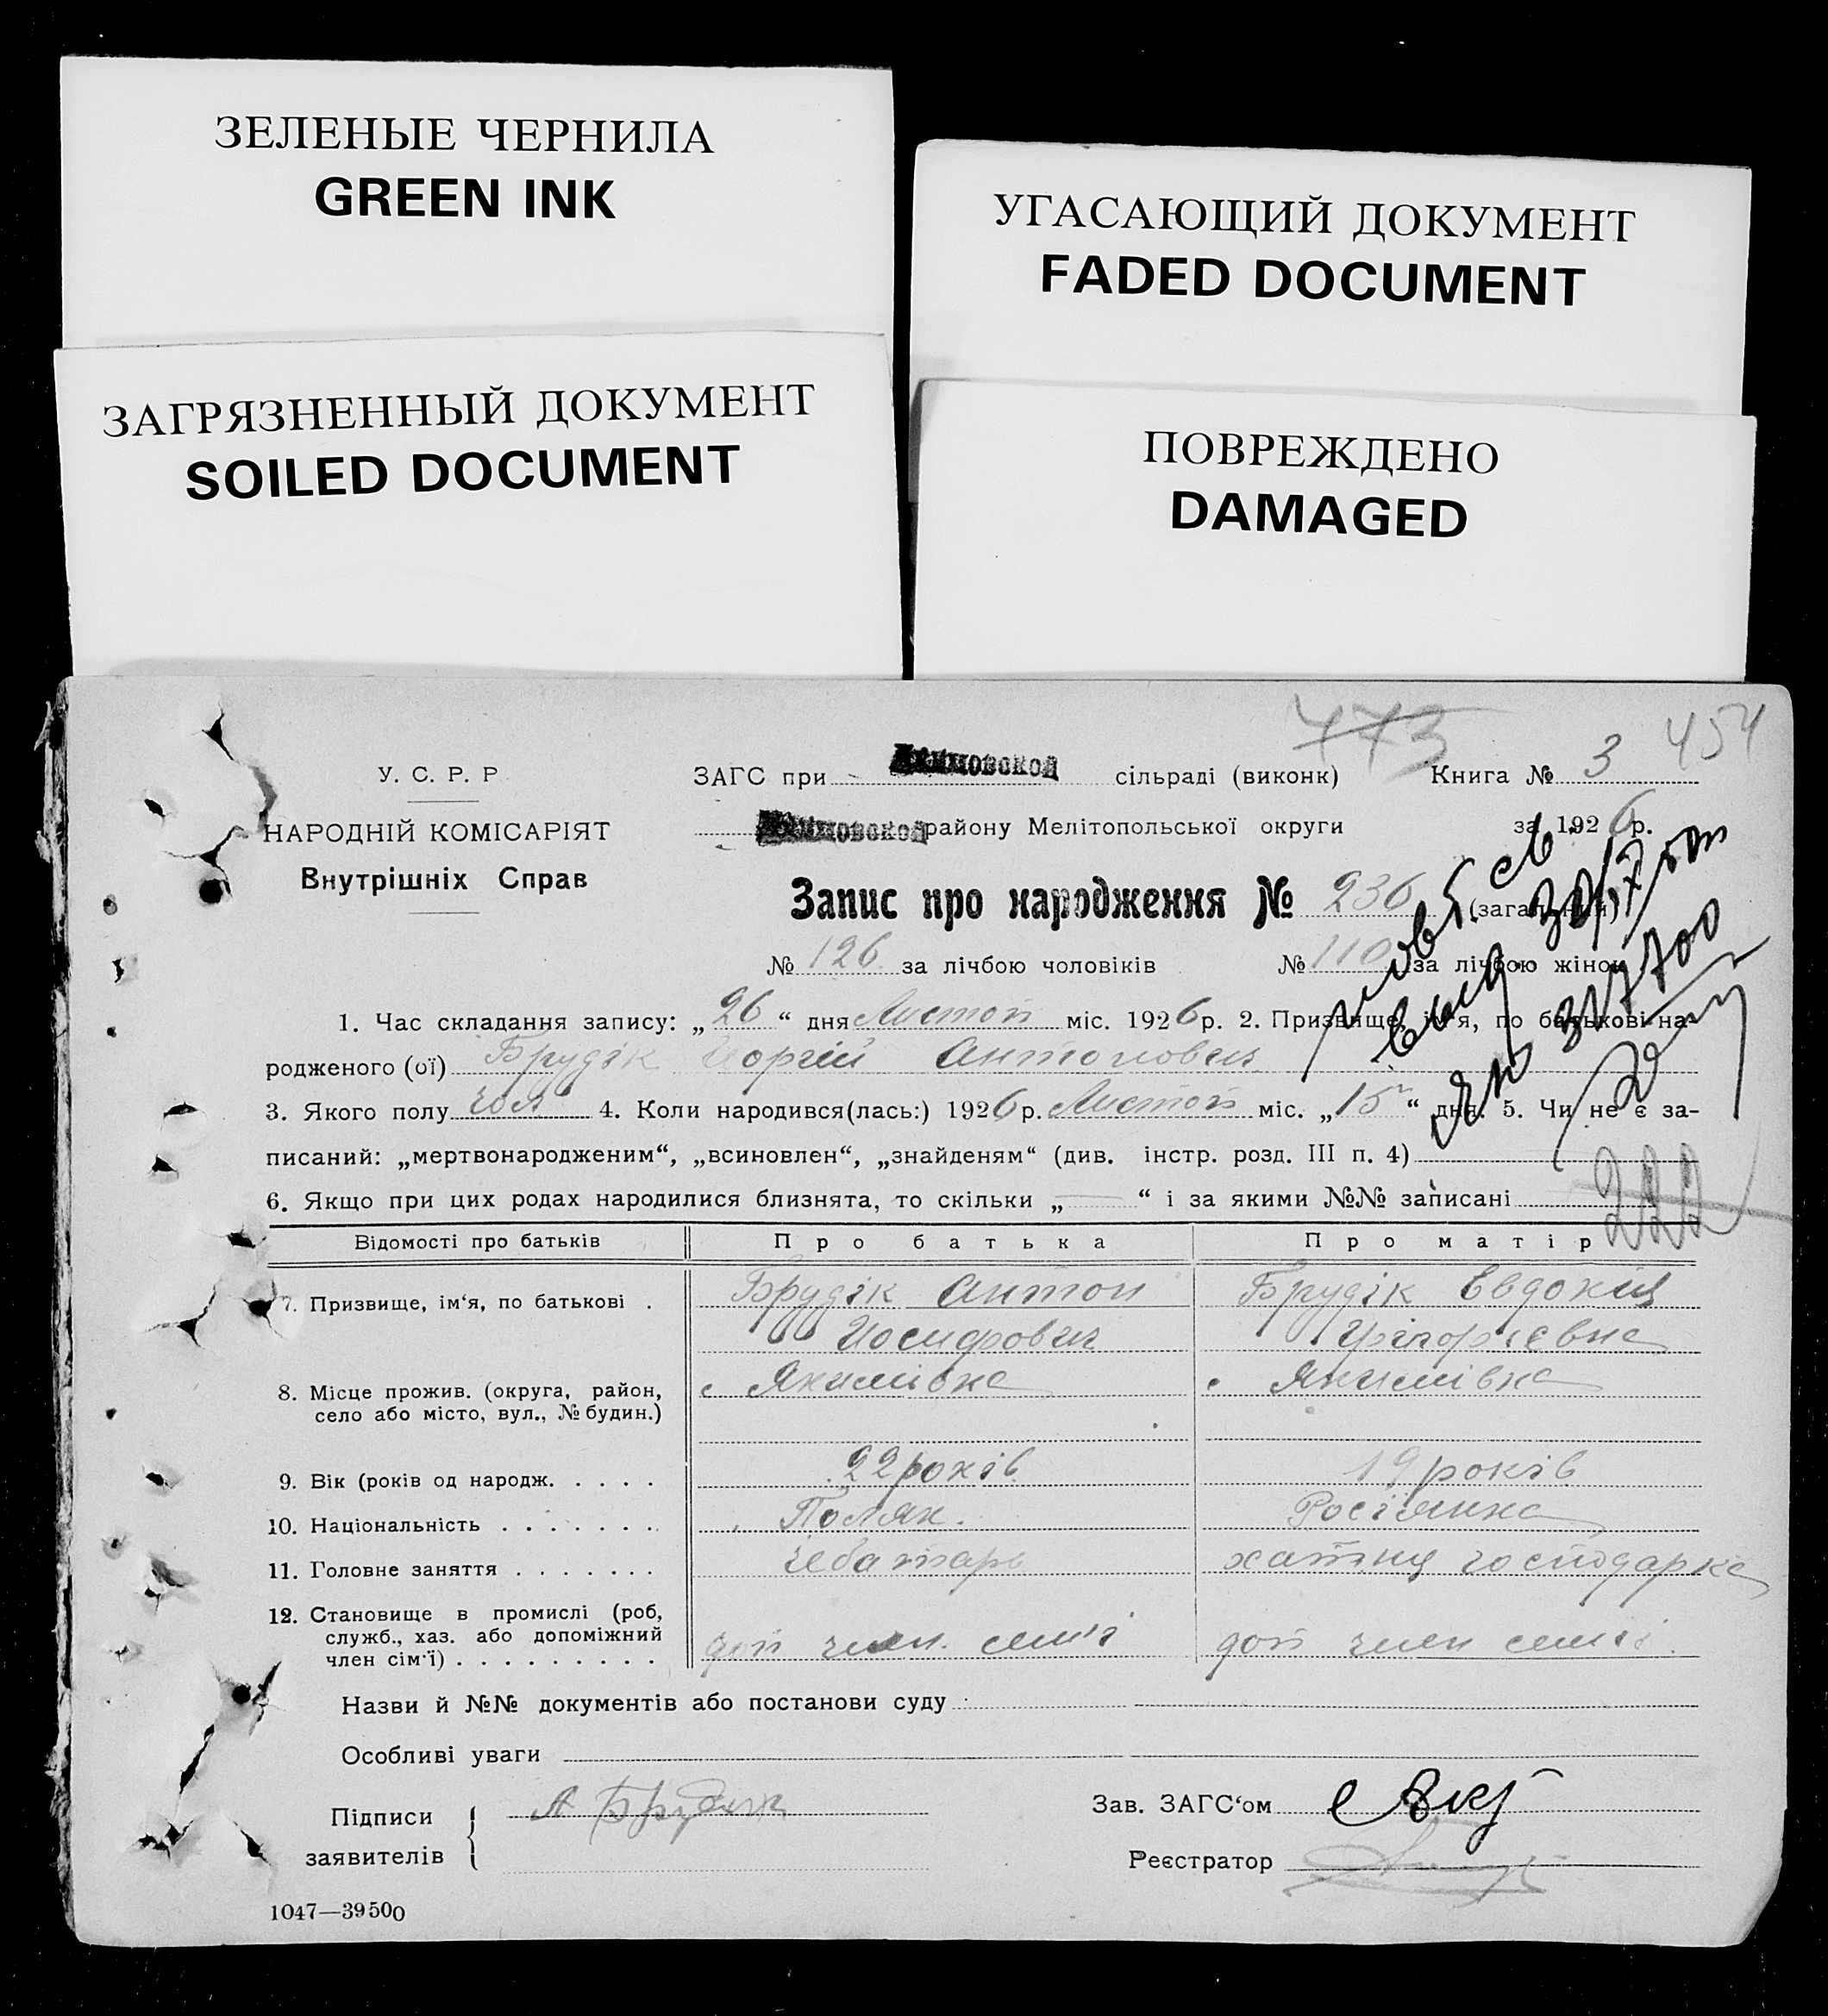 ЗЕЛЕНЫЕ ЧЕРНИЛА
GREEN INK
УГАСАЮЩИЙ ДОКУМЕНТ
FADED DOCUMENT
ЗАГРЯЗНЕННЫЙ ДОКУМЕНТ
SOILED DOCUMENT
ПОВРЕЖДЕНО
DAMAGED
473
454
У. С. Р. Р
ЗАГС при Акимовской сільраді (виконк) Книга № 3
НАРОДНІЙ КОМІСАРІЯТ
Акимовской району Мелітопольської округи за 1926 р.
Внутрішніх Справ
Запис про народження № 236 (загальний)
№ 126 за лічбою чоловіків № 110 за лічбою жінок
1. Час складання запису: „26“ дня Листоп міс. 1926 р. 2. Призвище, ім'я, по батькові на-
родженого (ої) Брудік Георгій Антонович
3. Якого полу чол 4. Коли народився(лась:) 1926 р. Листоп міс. „15“ дня. 5. Чи не є за-
писаний: „мертвонародженим“, „всиновлен“, „знайденям“ (див. інстр. розд. III п. 4)
6. Якщо при цих родах народилися близнята, то скільки „ — “ і за якими №№ записані
222
Відомості про батьків Про батька Про матір
7. Призвище, ім'я, по батькові . Брудік Антон Брудік Евдокия
Иосифович Григорієвна
8. Місце прожив. (округа, район, с Якимівка с Якимівка
село або місто, вул., № будин.)
9. Вік (років од народж. . . . . 22 років 19 років
10. Національність . . . . . . . Поляк. Росіянка
11. Головне заняття . . . . . . . чеботарь хатня господарка
12. Становище в промислі (роб,
служб., хаз. або допоміжний доп член. семї доп член семії.
член сім'ї) . . . . . . . . .
Назви й №№ документів або постанови суду
Особливі уваги
Підписи А Брудик Зав. ЗАГС'ом
заявителів Реєстратор
1047—39500